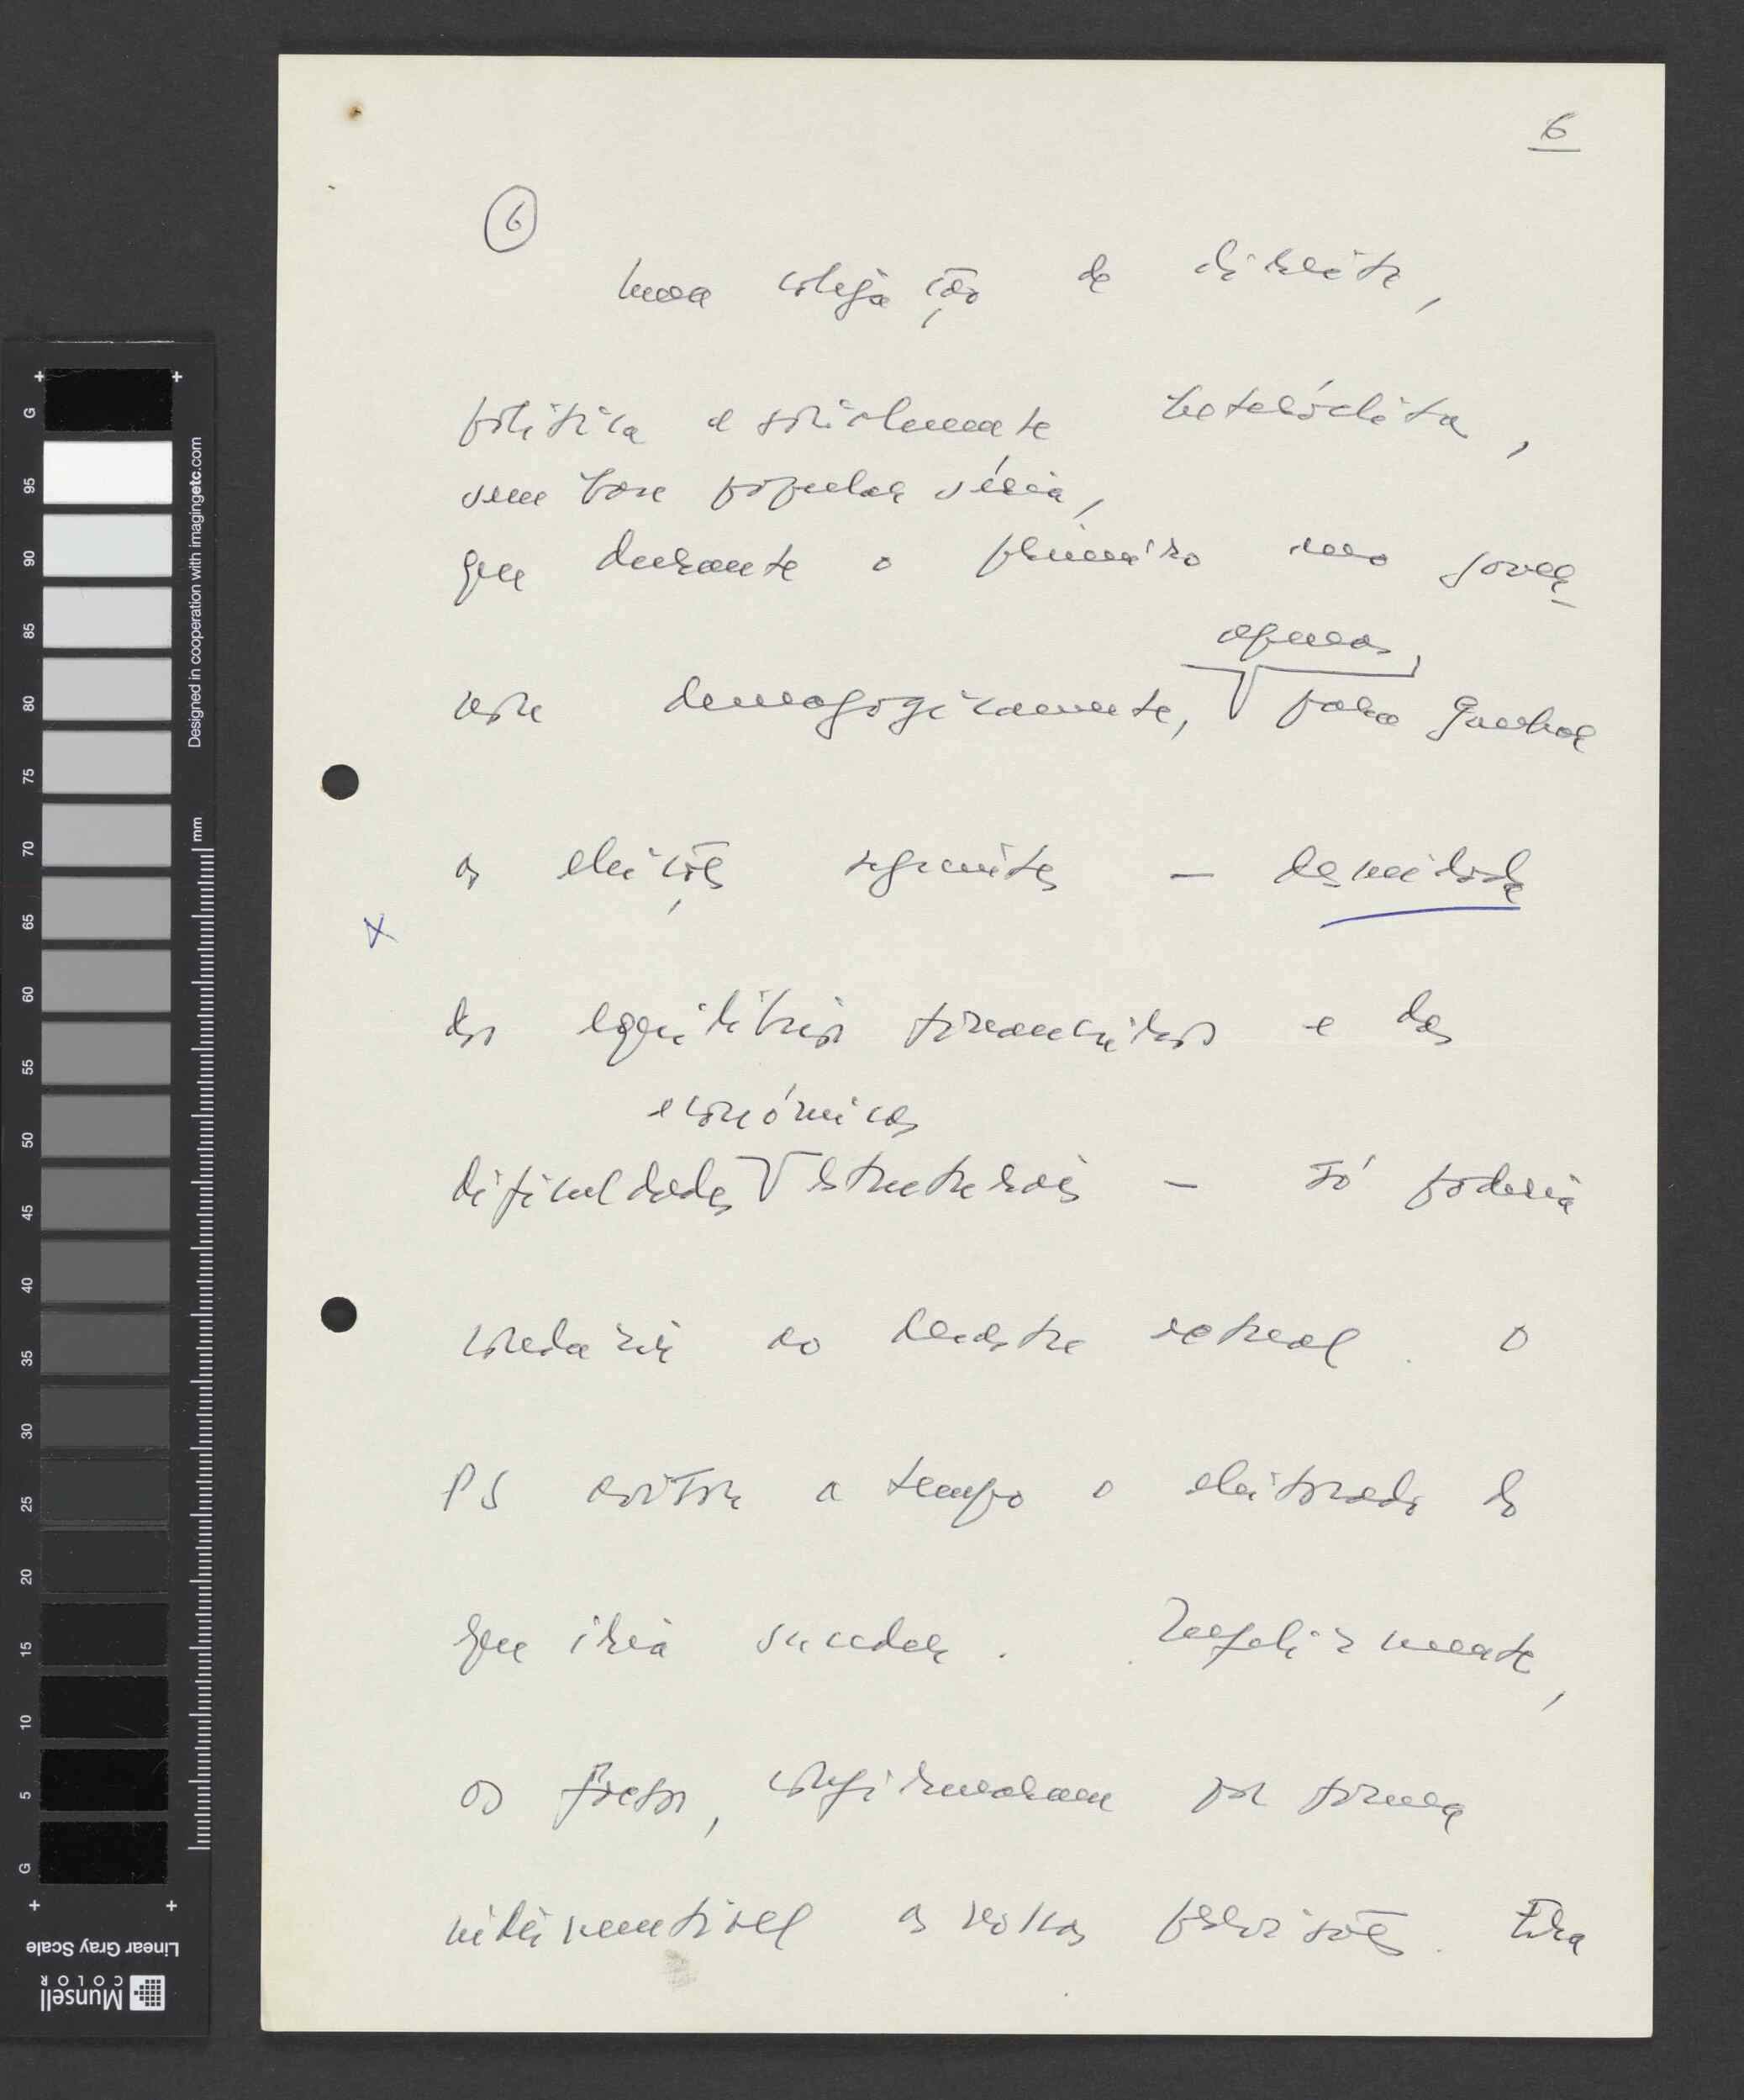 6
6
Uma coligação de direita,
política e socialmente heteróclita,
sem base popular séria,
que durante o primeiro ano gover-
nara demagogicamente, apenas, para ganhar
as eleições seguintes — descuidada
dos equilíbrios financeiros e das
dificuldades económicas estruturais — só poderia
conduzir ao desastre actual. O
PS avisou a tempo o eleitorado do
que iria suceder. Infelizmente,
os factos, confirmaram por forma
indesmentível as nossas previsões. Era
Designed in cooperation with imagingetc.com
mm
G
95
90
85
80
75
70
65
60
55
50
45
40
35
30
25
20
15
10
5
G
Linear Gray Scale
Munsell
COLOR